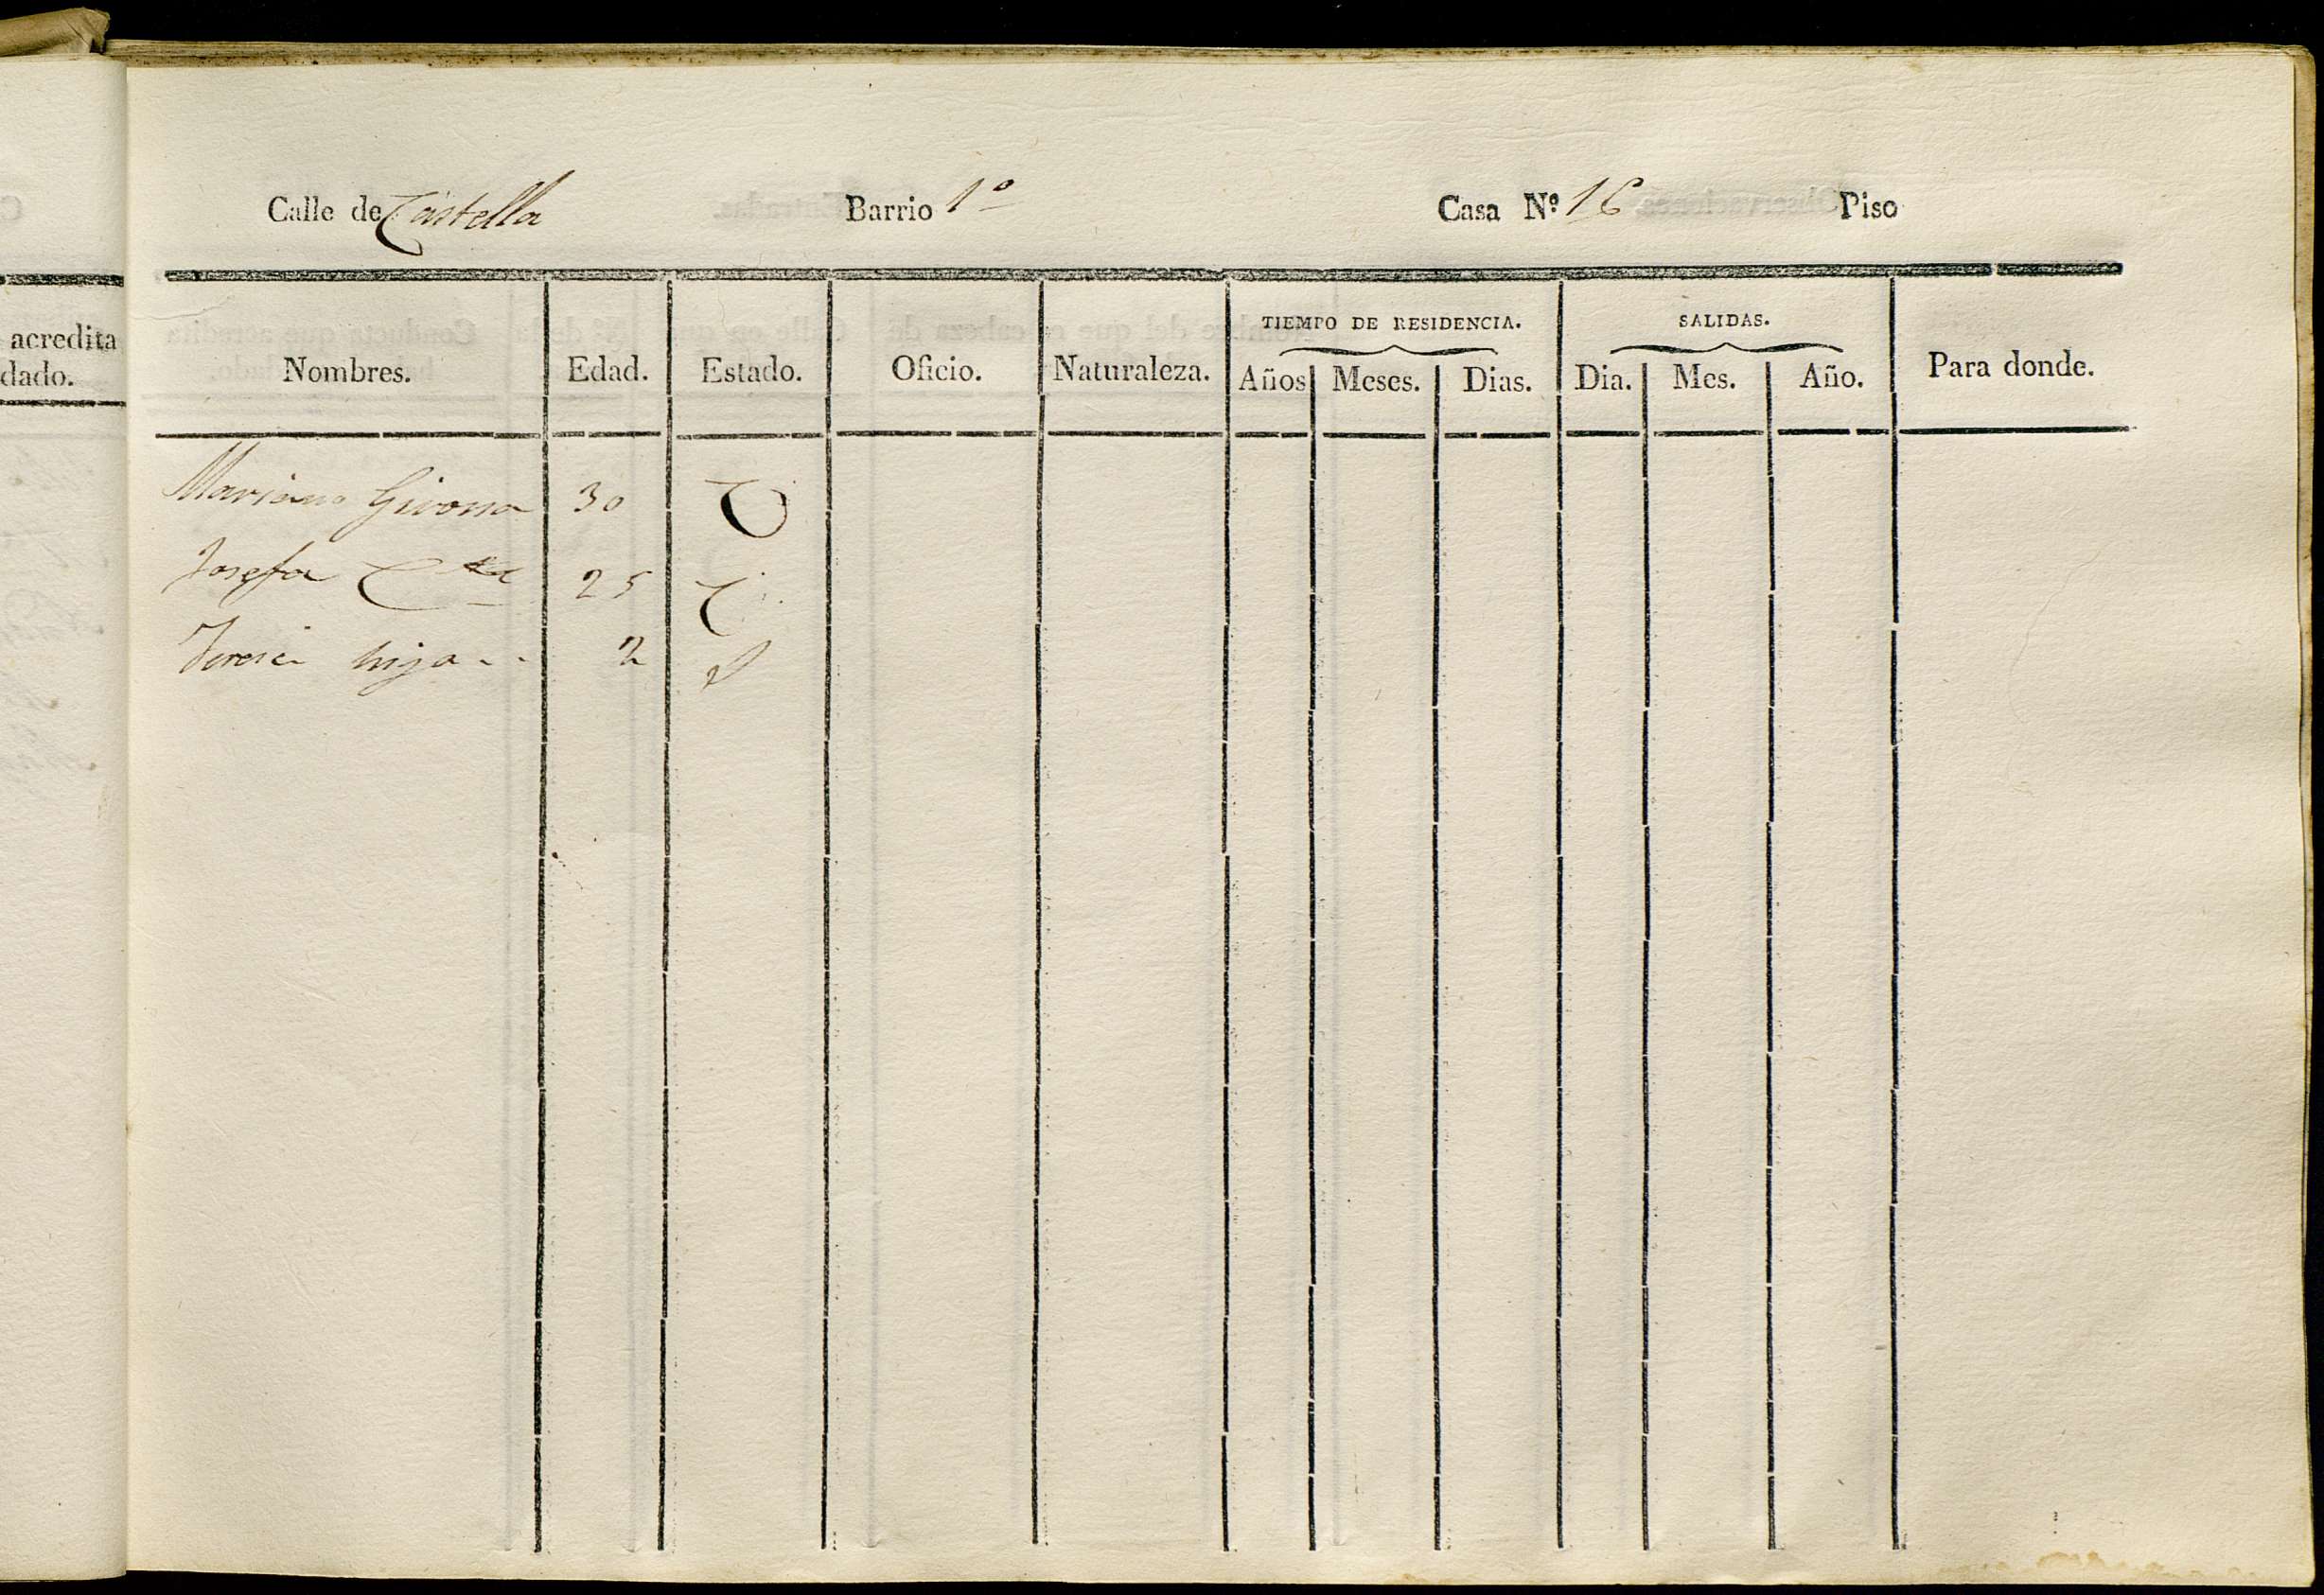 acredita
dado.
Calle de Castella Barrio 1º Casa Nº 16 Piso
Nombres. Edad. Estado. Oficio. Naturaleza. TIEMPO DE RESIDENCIA. SALIDAS. Para donde.
Años Meses. Dias. Dia. Mes. Año.
Mariano Girona 30 C
Josefa 25 C
Teresa hija 2 S